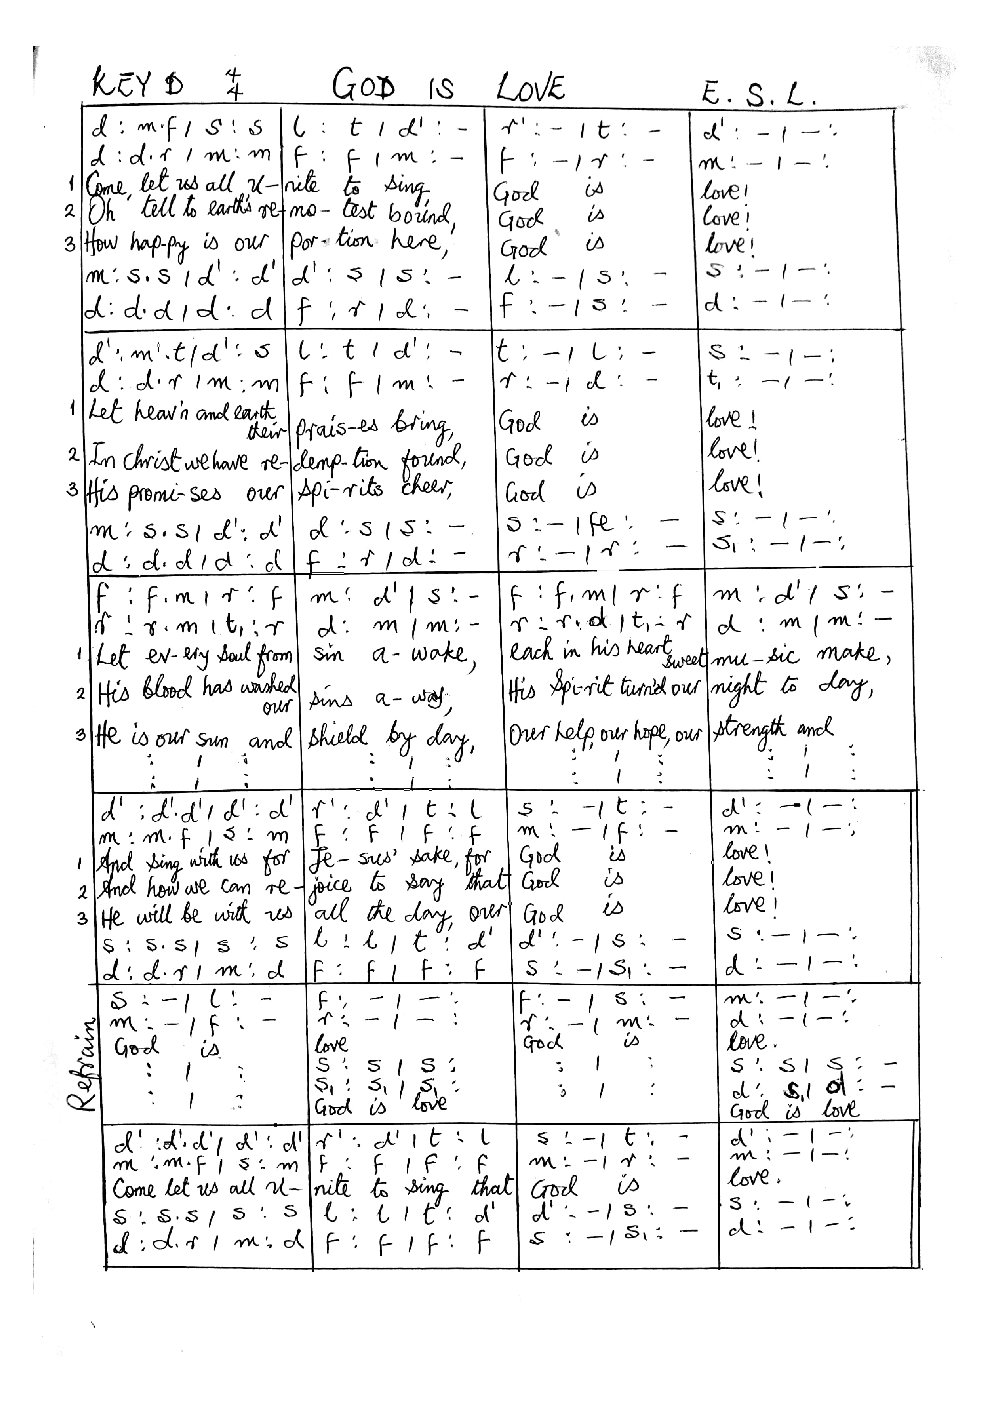 KEY D 4/4 GOD IS LOVE E. S. L.
d : m.f / s : s | l : t / d' : - | r' : - / t : - | d' : - / - :
d : d.r / m : m | f : f / m : - | f : - / r : - | m : - / - :
1 Come, let us all u- | nite to sing, | God is | love!
2 Oh tell to earth's re- | mo- test bound, | God is | love!
3 How hap-py is our | por- tion here, | God is | love!
m : s.s / d' : d' | d' : s / s : - | l : - / s : - | s : - / - :
d : d.d / d : d | f : r / d : - | f : - / s : - | d : - / - :
d' : m'.t / d' : s | l : t / d' : - | t : - / l : - | s : - / - :
d : d.r / m : m | f : f / m : - | r : - / d : - | t, : - / - :
1 Let heav'n and earth their | prais-es bring, | God is | love!
2 In Christ we have re- | demp-tion found, | God is | love!
3 His promi-ses our | spi-rits cheer, | God is | love!
m : s.s / d' : d' | d : s / s : - | s : - / fe : - | s : - / - :
d : d.d / d : d | f : r / d : - | r : - / r : - | s, : - / - :
f : f.m / r : f | m : d' / s : - | f : f.m / r : f | m : d' / s : -
r : r.m / t, : r | d : m / m : - | r : r.d / t, : r | d : m / m : -
1 Let ev-ery soul from | sin a-wake, | each in his heart sweet | mu-sic make,
2 His blood has washed our | sins a-way, | His Spi-rit turn'd our | night to day,
3 He is our sun and | shield by day, | Our help, our hope, our | strength and
: / : | : / : | : / : | : / :
: / : | : / : | : / : | : / :
d' : d'.d' / d' : d' | r' : d' / t : l | s : - / t : - | d' : - / - :
m : m.f / s : m | f : f / f : f | m : - / f : - | m : - / - :
1 And sing with us for | Je- sus' sake, for | God is | love!
2 And how we can re- | joice to say that | God is | love!
3 He will be with us | all the day, over | God is | love!
s : s.s / s : s | l : l / t : d' | d' : - / s : - | s : - / - :
d : d.r / m : d | f : f / f : f | s : - / s, : - | d : - / - :
Refrain
s : - / l : - | f : - / - : | f : - / s : - | m : - / - :
m : - / f : - | r : - / - : | r : - / m : - | d : - / - :
God is | love | God is | love.
: / : | s : s / s : | : / : | s : s / s : -
: / : | s, : s, / s, : | : / : | d : s, / d : -
God is love | God is love
d' : d'.d' / d' : d' | r' : d' / t : l | s : - / t : - | d' : - / - :
m : m.f / s : m | f : f / f : f | m : - / r : - | m : - / - :
Come let us all u- | nite to sing that | God is | love.
s : s.s / s : s | l : l / t : d' | d' : - / s : - | s : - / - :
d : d.r / m : d | f : f / f : f | s : - / s, : - | d : - / - :